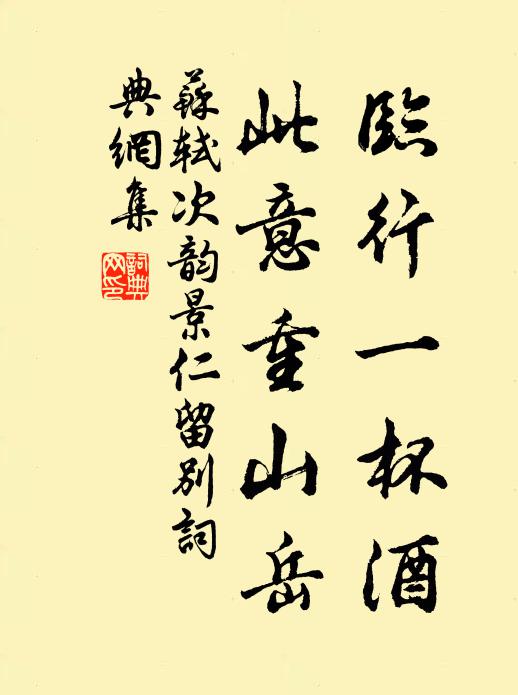 臨行一杯酒
此意重山岳
蘇軾次韵景仁留别詞
典網集
詞典
网印